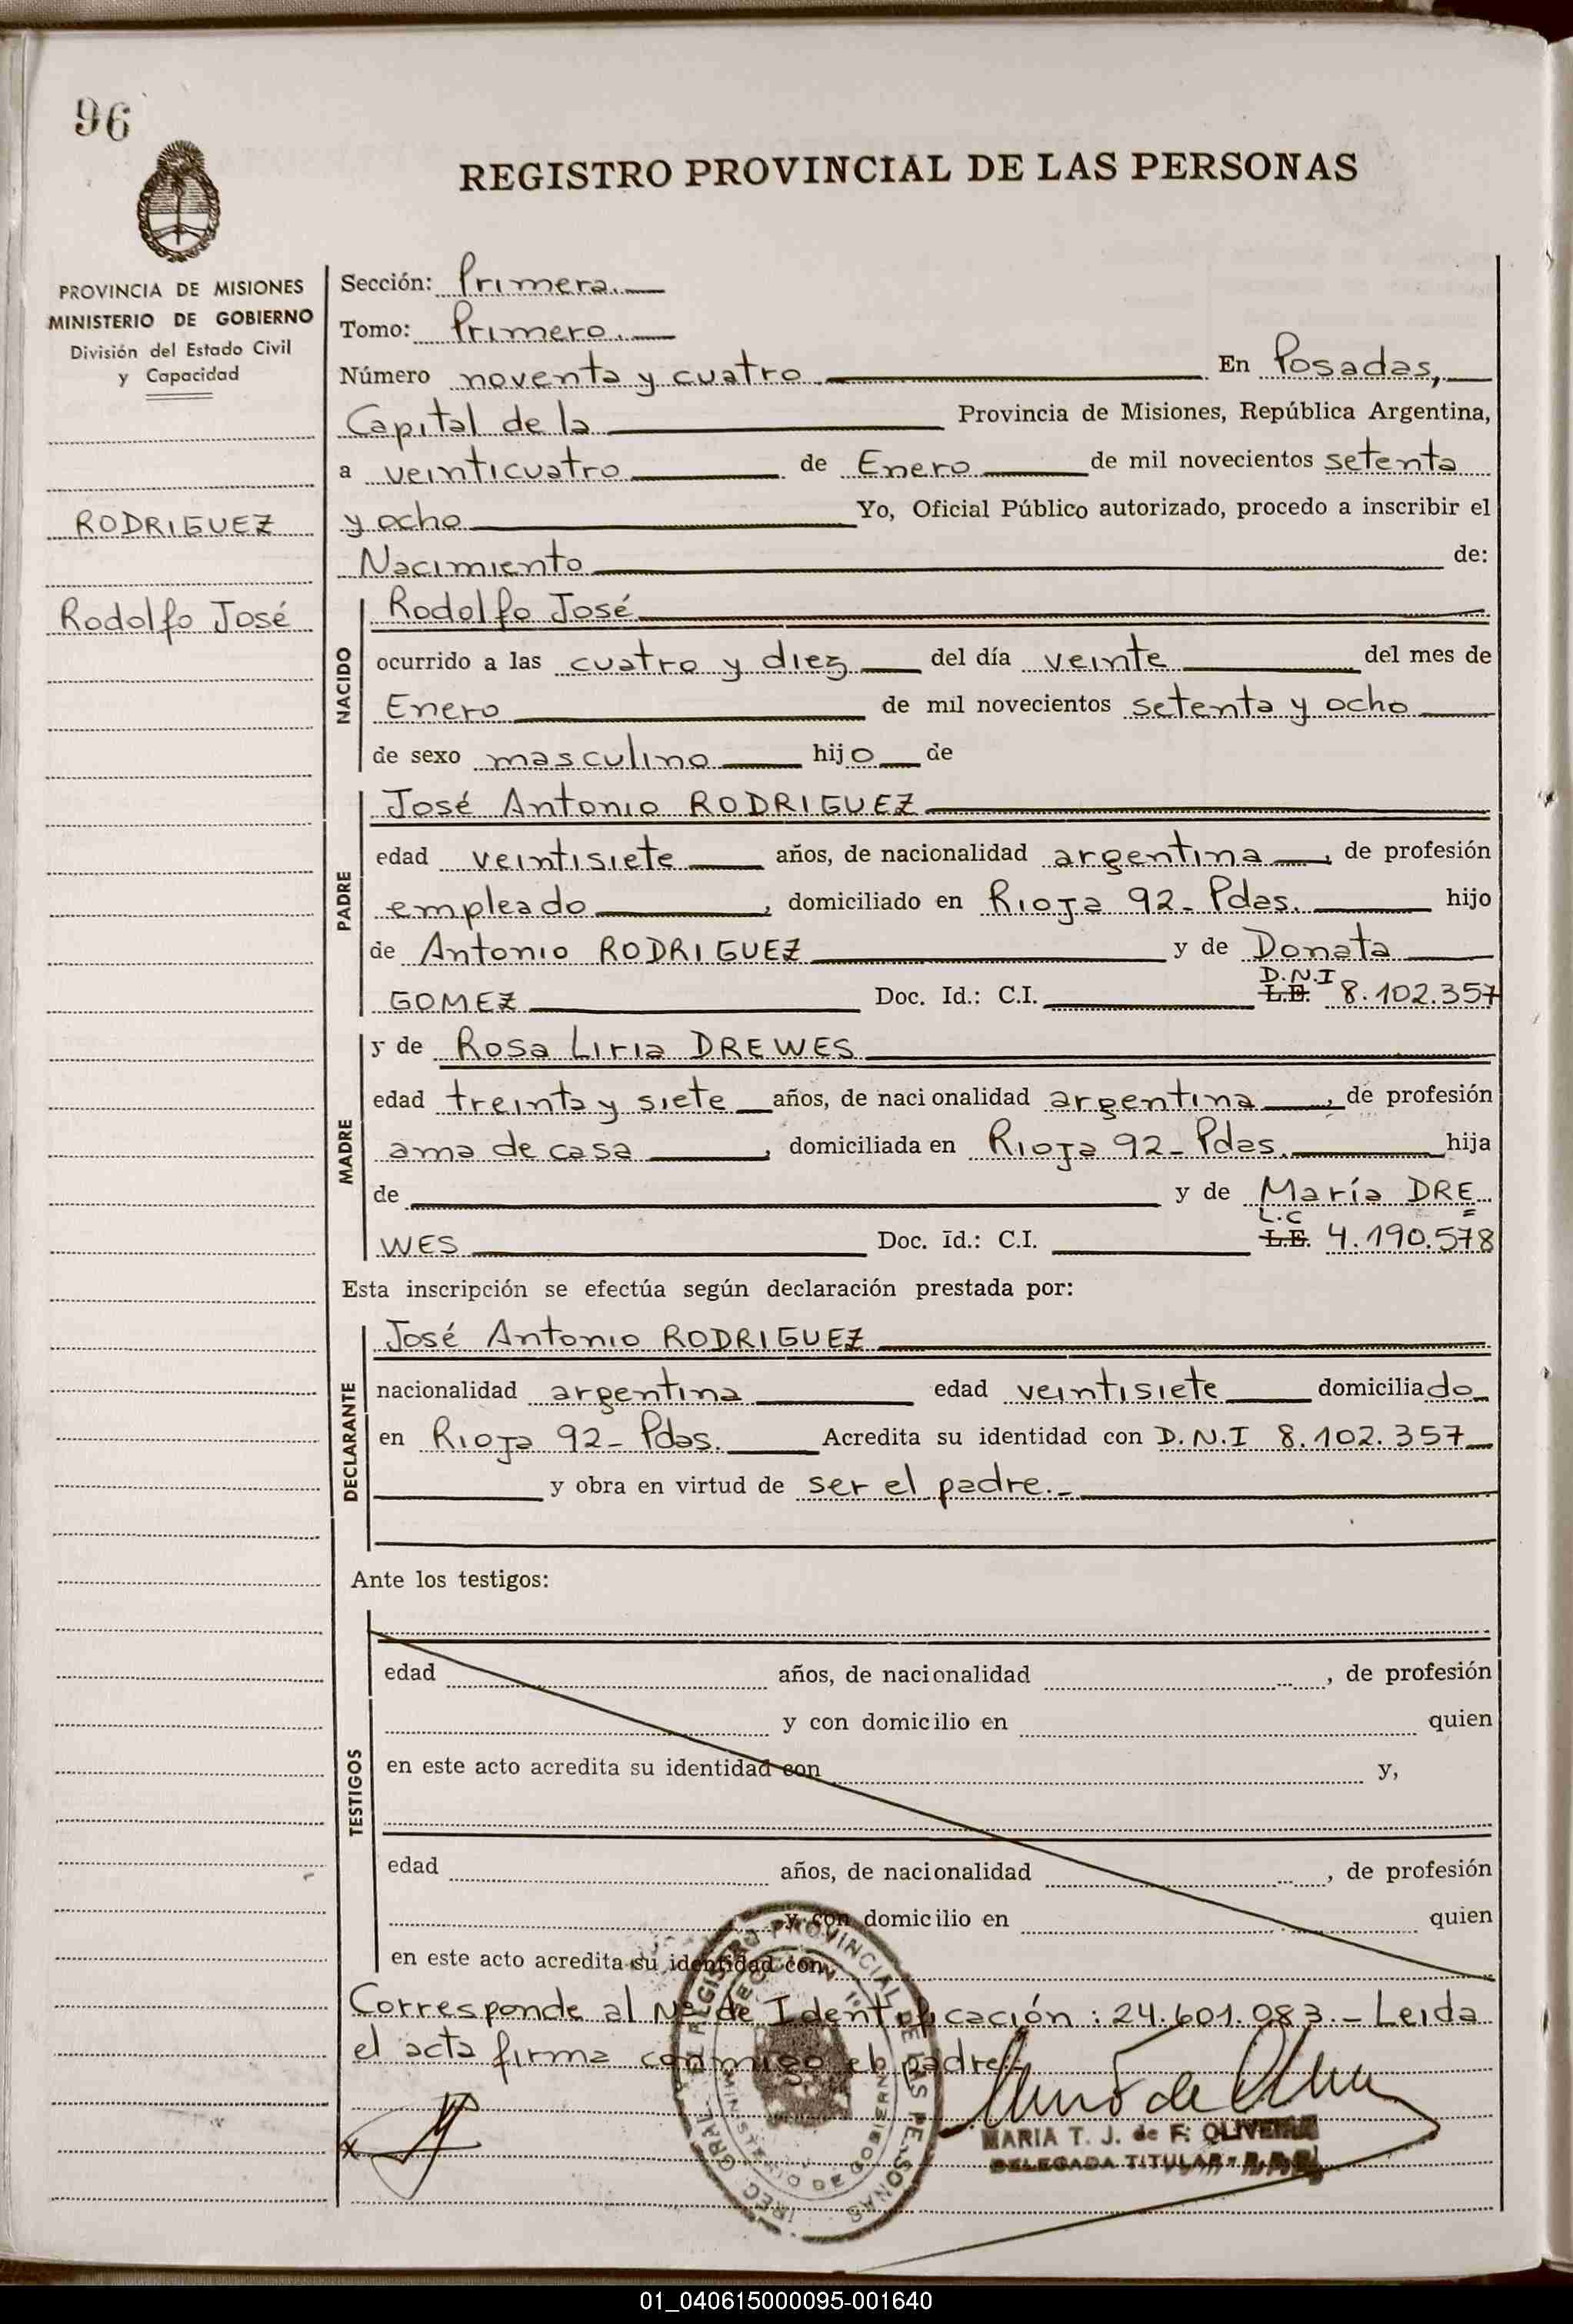 96
REGISTRO PROVINCIAL DE LAS PERSONAS
PROVINCIA DE MISIONES
MINISTERIO DE GOBIERNO
División del Estado Civil
y Capacidad
RODRIGUEZ
Rodolfo José
Sección: Primera.
Tomo: Primero.
Número noventa y cuatro En Posadas,
Capital de la Provincia de Misiones, República Argentina,
a veinticuatro de Enero de mil novecientos setenta
y ocho Yo, Oficial Público autorizado, procedo a inscribir el
Nacimiento de:
NACIDO
Rodolfo José
ocurrido a las cuatro y diez del día veinte del mes de
Enero de mil novecientos setenta y ocho
de sexo masculino hijo de
PADRE
José Antonio RODRIGUEZ
edad veintisiete años, de nacionalidad argentina, de profesión
empleado, domiciliado en Rioja 92- Pdas. hijo
de Antonio RODRIGUEZ y de Donata
D.N.I
GOMEZ Doc. Id.: C.I. L.E. 8.102.357
MADRE
y de Rosa Liria DREWES
edad treinta y siete años, de nacionalidad argentina, de profesión
ama de casa, domiciliada en Rioja 92- Pdas. hija
de y de María DRE=
L.C
WES Doc. Id.: C.I. L.E. 4.190.578
Esta inscripción se efectúa según declaración prestada por:
DECLARANTE
José Antonio RODRIGUEZ
nacionalidad argentina edad veintisiete domiciliado
en Rioja 92- Pdas. Acredita su identidad con D.N.I 8.102.357
y obra en virtud de ser el padre.-
Ante los testigos:
TESTIGOS
edad años, de nacionalidad , de profesión
y con domicilio en quien
en este acto acredita su identidad con y,
edad años, de nacionalidad , de profesión
y con domicilio en quien
en este acto acredita su identidad con
Corresponde al Nº de Identificación: 24.601.083.- Leida
el acta firma conmigo el padre.-
MARIA T. J. de F. OLIVEIRA
DELEGADA TITULAR
01_040615000095-001640